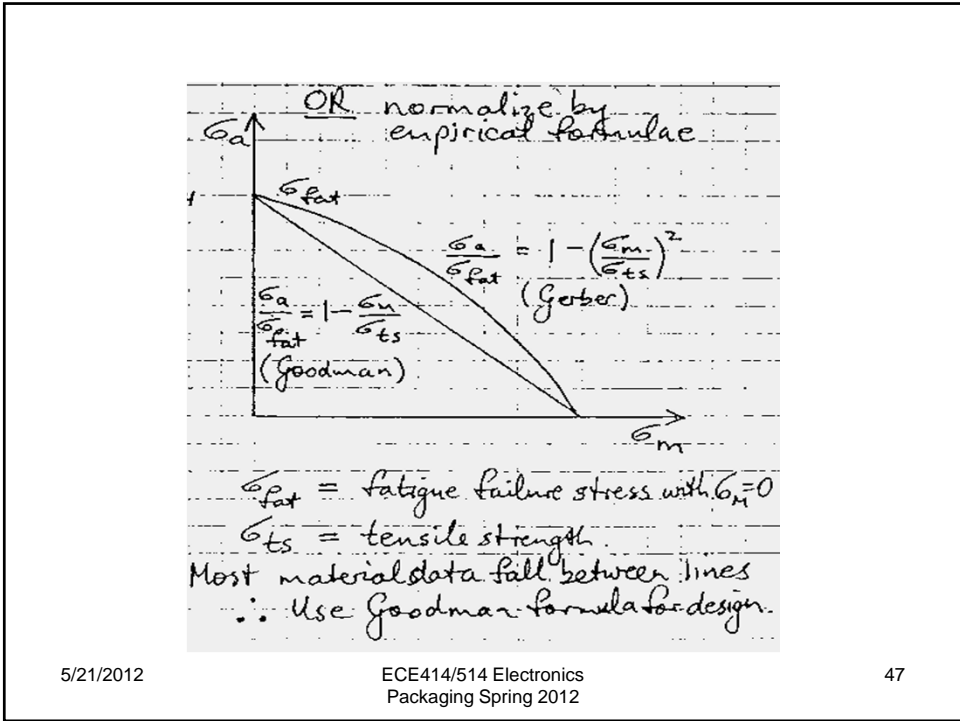 OR normalize by
empirical formulae
σa
σfat
σa/σfat = 1 - (σm/σts)²
(Gerber)
σa/σfat = 1 - σm/σts
(Goodman)
σm
σfat = fatigue failure stress with σM=0
σts = tensile strength.
Most material data fall between lines
∴ Use Goodman formula for design.
5/21/2012
ECE414/514 Electronics
Packaging Spring 2012
47